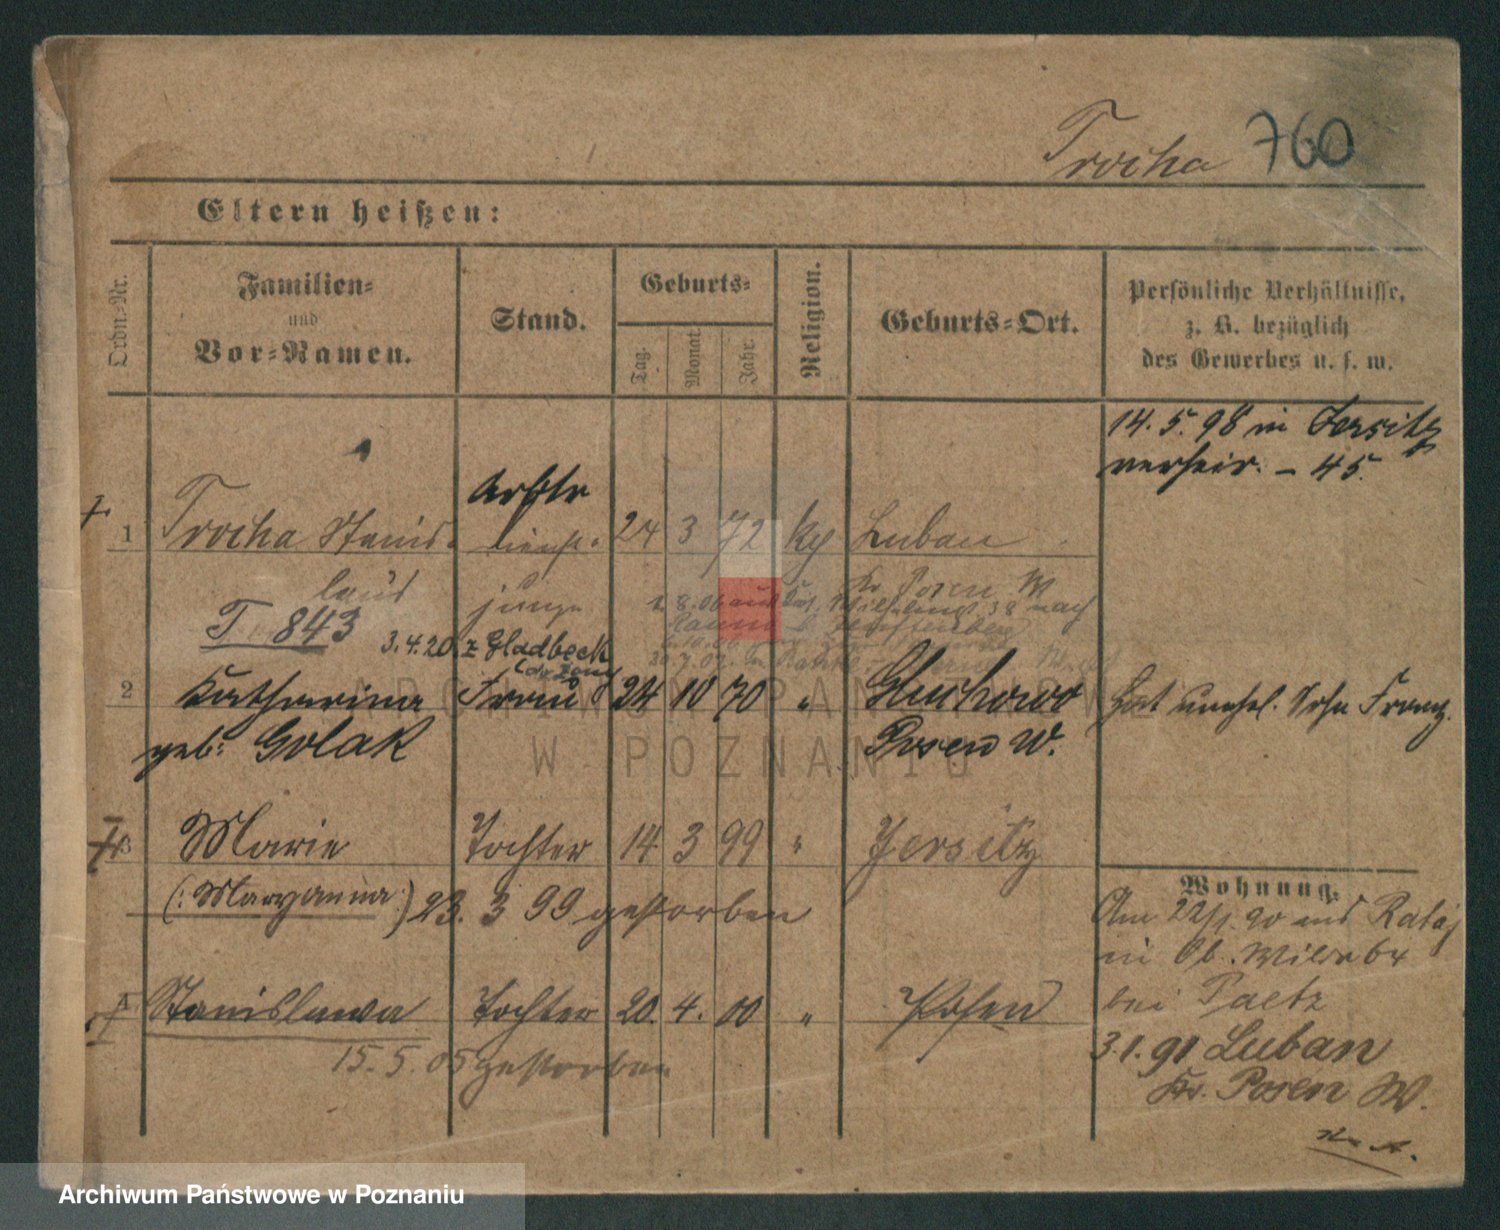 Trocha 760
Eltern heißen:
Ordn.-Nr.
Familien-
und
Vor-Namen.
Stand.
Geburts-
Tag.
Monat.
Jahr.
Religion.
Geburts-Ort.
Persönliche Verhältnisse,
z. B. bezüglich
des Gewerbes u. s. w.
14. 5. 98 in Jersitz
verheir. - 45.
Arbtr
1 Trocha Stanis- 24 3 72 Luban
laus junge Kr. Posen W
T 843
3.4.20. z Gladbeck
2 Katharina Frau 24 10 70 " Gluchowo hat unehel. Sohn Franz.
geb: Golak Posen W.
3 Marie Tochter 14 3 99 " Jersitz
(: Maryanna :) 23. 3 99 gestorben
Wohnung.
Am 22/1. 90 aus Rataj
in Ob. Wilda 64
bei Paetz
4 Stanislawa Tochter 20. 4. 00 " Posen
15. 5. 05 gestorben
3.1.91 Luban
Kr. Posen W.
ARCHIWUM PAŃSTWOWE
W POZNANIU
Archiwum Państwowe w Poznaniu